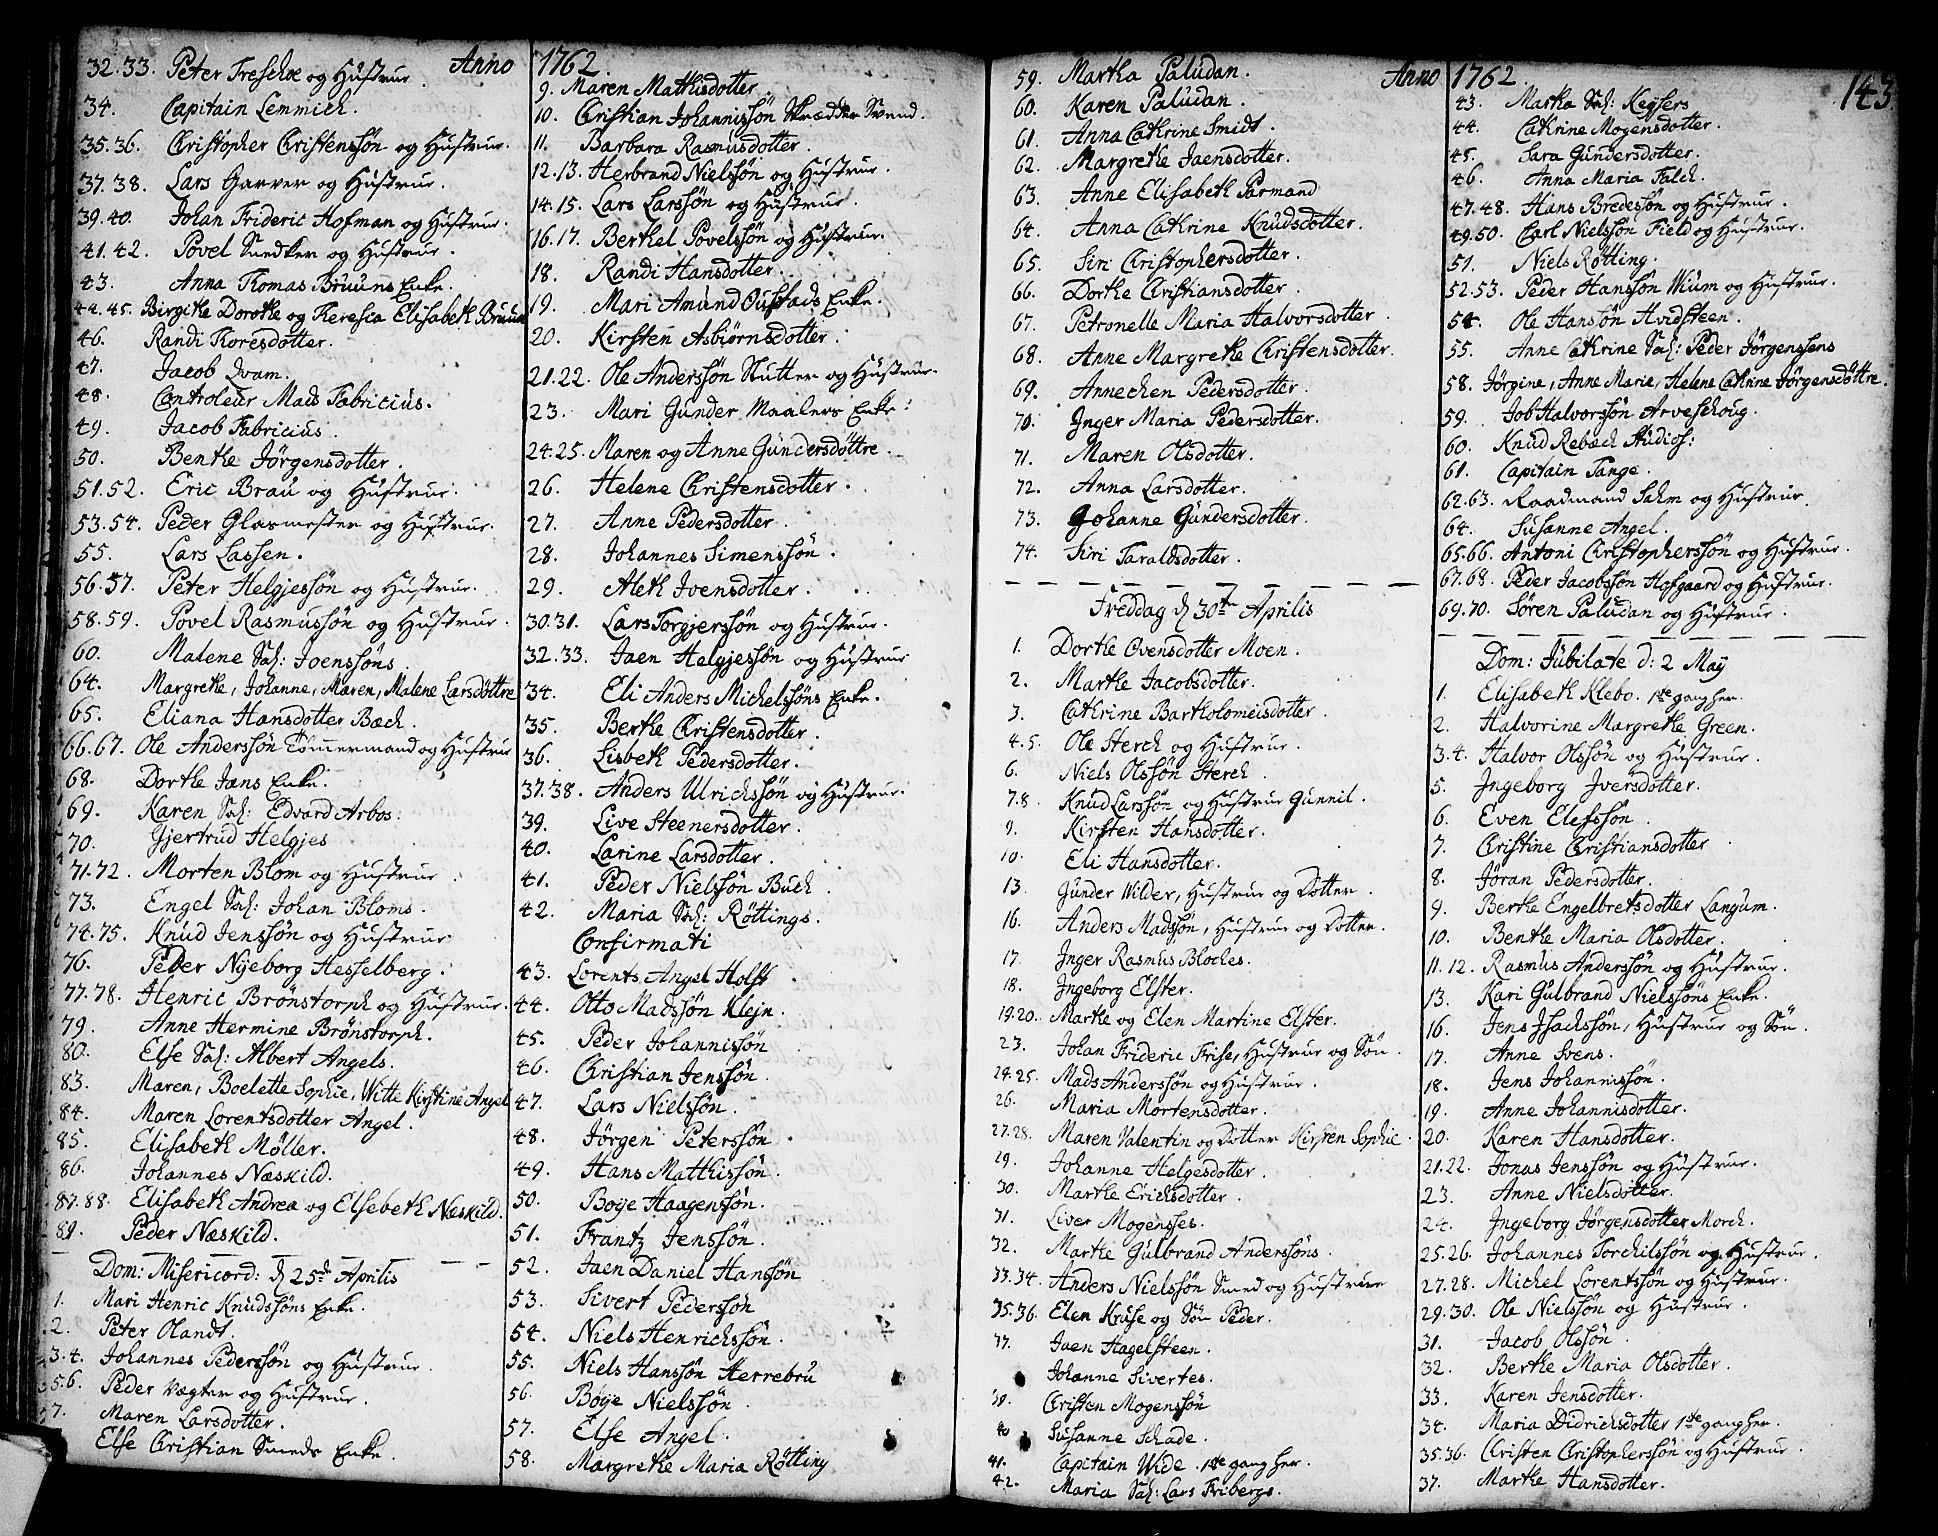 Anno 1762.
32.33. Peter Treschow og Hustrue.
34. Capitain Lemmich.
35.36. Christopher Christenssön og Hustrue.
37.38. Lars Garver og Hustrue.
39.40. Johan Frideric Hofman og Hustrue.
41.42. Povel Snedker og Hustrue.
43. Anna Thomas Bruuns Enke.
44.45. Birgithe Dorothe og Theresia Elisabeth Bruun
46. Randi Thoresdotter.
47. Jacob Qvam.
48. Controleur Mads Fabricius.
49. Jacob Fabricius.
50. Benthe Jörgensdotter.
51.52. Eric Brau og Hustrue.
53.54. Peder Glasmester og Hustrue.
55. Lars Lassen.
56.57. Peter Helgjessön og Hustrue.
58.59. Povel Rasmussön og Hustrue.
60. Malene Sal: Joenssöns.
64. Margrethe, Johanne, Maren, Malene Larsdöttre
65. Eliana Hansdotter Bach.
66.67. Ole Anderssön Tömmermand og Hustrue
68. Dorthe Jans Enke.
69. Karen Sal: Edvard Arbos.
70. Gjertrud Helgjes
71.72. Morten Blom og Hustrue.
73. Engel Sal: Johan Bloms.
74.75. Knud Jenssön og Hustrue
76. Peder Nyeborg Hesselberg.
77.78. Henric Brönstorph og Hustrue.
79. Anne Hermine Brönstorph.
80. Else Sal: Albert Angels.
83. Maren, Boelette Sophie, Witte Kirstine Angel
84. Maren Lorentsdotter Angel.
85. Elisabeth Möller.
86. Johannes Næskild.
87.88. Elisabeth Andrea og Elsebeth Næskild.
89. Peder Næskild.
Dom: Misericord: d 25de Aprilis
1. Mari Henric Knudssöns Enke.
2. Peter Olandt.
3.4. Johannes Pederssön og Hustrue.
5.6. Peder Vægter og Hustrue.
7. Maren Larsdotter.
Else Christian Smeds Enke.
9. Maren Mathisdotter.
10. Christian Johannissön Skrædder Svend.
11. Barbara Rasmusdotter.
12.13. Herbrand Nielssön og Hustrue.
14.15. Lars Larssön og Hustrue.
16.17. Berthel Povelssön og Hustrue.
18. Randi Hansdotter.
19. Mari Amund Oustads Enke.
20. Kirsten Asbiörnsdotter.
21.22. Ole Anderssön Stutter og Hustrue.
23. Mari Gunder Maalers Enke.
24.25. Maren og Anne Gundersdöttre.
26. Helene Christensdotter.
27. Anne Pedersdotter.
28. Johannes Simenssön.
29. Aleth Ivensdotter.
30.31. Lars Torgjerssön og Hustrue.
32.33. Jaen Helgjessön og Hustrue
34. Eli Anders Michelssöns Enke.
35. Berthe Christensdotter.
36. Lisbeth Pedersdotter.
37.38. Anders Ulrichssön og Hustrue.
39. Live Steenersdotter.
40. Larine Larsdotter.
41. Peder Nielssön Buch.
42. Maria Sal: Röttings.
Confirmati
43. Lorents Angel Holst
44. Otto Madssön Klejn.
45. Peder Johannissön
46. Christian Jenssön.
47. Lars Nielssön.
48. Jörgen Peterssön.
49. Hans Matthissön.
50. Boye Haagenssön.
51. Frantz Jenssön.
52. Jaen Daniel Hanssön
53. Sivert Pederssön
54. Niels Henrichssön.
55. Niels Hanssön Herrebru
56. Boye Nielssön.
57. Else Angel.
58. Margrethe Maria Rötting
Anno 1762.
143.
59. Martha Paludan.
60. Karen Paludan.
61. Anna Cathrine Smidt.
62. Margrethe Jaensdotter.
63. Anne Elisabeth Permand
64. Anna Cathrine Knudsdotter.
65. Siri Christophersdotter.
66. Dorthe Christiansdotter.
67. Petronelle Maria Halvorsdotter.
68. Anne Margrethe Christensdotter.
69. Annechen Pedersdotter.
70. Inger Maria Pedersdotter.
71. Maren Olsdotter.
72. Anna Larsdotter.
73. Johanne Gundersdotter.
74. Siri Taraldsdotter.
Freddag d 30te Aprilis
1. Dorthe Ovensdotter Moen.
2. Marthe Jacobsdotter.
3. Cathrine Bartholomeisdotter.
4.5. Ole Sterch og Hustrue.
6. Niels Olssön Sterch.
7.8. Knud Larssön og Hustrue Gunnil.
9. Kirsten Hansdotter.
10. Eli Hansdotter.
13. Gunder Wilder, Hustrue og Dotter.
16. Anders Madssön, Hustrue og Dotter.
17. Inger Rasmus Bloches.
18. Ingeborg Elster.
19.20. Marthe og Elen Martine Elster.
23. Johan Frideric Frise, Hustrue og Sön.
24.25. Mads Anderssön og Hustrue.
26. Maria Mortensdotter.
27.28. Maren Valentin og Dotter Kirsten Sophie.
29. Johanne Helgesdotter.
30. Marthe Erichsdotter.
31. Liver Mogenses.
32. Marthe Gulbrand Anderssöns.
33.34. Anders Nielssön Smed og Hustrue
35.36. Elen Kruse og Sön Peder.
37. Jaen Hagelsteen.
Johanne Sivertes.
39. Christen Mogenssön
40 Susanne Schade.
41. Capitain Wide. 1ste gang her.
42. Maria Sal: Lars Fribergs.
43. Martha Sal: Keysers
44. Cathrine Mogensdotter.
45. Sara Gundersdotter.
46. Anna Maria Falch.
47.48. Hans Bredessön og Hustrue.
49.50. Carl Nielssön Field og Hustrue.
51. Niels Rötting.
52.53. Peder Hanssön Wium og Hustrue.
54. Ole Hanssön Hvidsteen.
55. Anne Cathrine Sal: Peder Jörgenssens
58. Jörgine, Anne Marie, Helene Cathrine Jörgensdöttre.
59. Job Halvorssön Arveschoug.
60. Knud Rebach Studios:
61. Capitain Tange.
62.63. Raadmand Sahm og Hustrue.
64. Susanne Angel.
65.66. Antoni Christopherssön og Hustrue.
67.68. Peder Jacobssön Hofgaard og Hustrue.
69.70. Sören Paludan og Hustrue.
Dom: Jubilate d: 2 May
1. Elisabeth Klebo. 1ste gang her.
2. Halvorine Margrethe Green.
3.4. Halvor Olssön og Hustrue.
5. Ingeborg Iversdotter.
6. Even Elefssön.
7. Christine Christiansdotter
8. Jöran Pedersdotter.
9. Berthe Engelbretsdotter Langum.
10. Benthe Maria Olsdotter.
11.12. Rasmus Anderssön og Hustrue.
13. Kari Gulbrand Nielssöns Enke.
16. Jens Isachssön, Hustrue og Sön.
17. Anne Svens.
18. Jens Johannissön.
19. Anne Johannisdotter.
20. Karen Hansdotter.
21.22. Jonas Jenssön og Hustrue.
23. Anne Nielsdotter.
24. Ingeborg Jörgensdotter Morch.
25.26. Johannes Torchilssön og Hustrue.
27.28. Michel Lorentssön og Hustrue.
29.30. Ole Nielssön og Hustrue.
31. Jacob Olssön.
32. Berthe Maria Olsdotter.
33. Karen Jensdotter.
34. Maria Didrichsdotter 1ste gang her.
35.36. Christen Christopherssön og Hustrue.
37. Marthe Hansdotter.